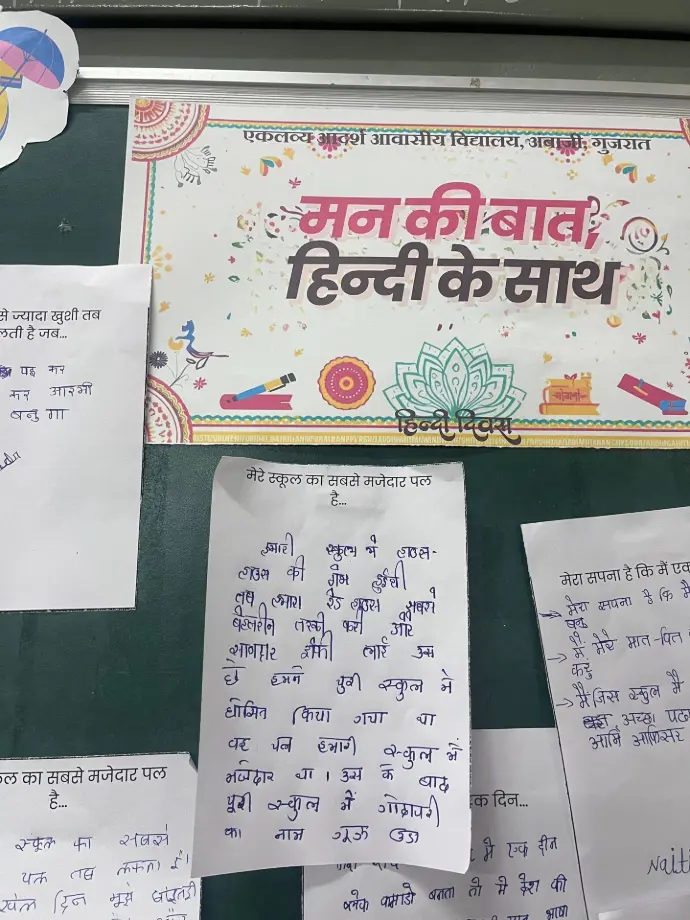 एकलव्य आदर्श आवासीय विद्यालय, अंबाजी, गुजरात
मन की बात,
हिन्दी के साथ
हिन्दी दिवस
से ज्यादा खुशी तब
लती है जब...
पढ़ कर
कर आरमी
बनु गा
मेरे स्कूल का सबसे मजेदार पल
है...
हमारी स्कुल में हाउस-
हाउस की गेम हुईथी
तब हमारा रेड हाउस सबसे
बेहतरीन तरकी करी और
सानदार ट्रोफी लाई उस
हमने पुरी स्कुल में
घोसित किया गया था
वह पल हमारी स्कुल में
मजेदार था। उस के बाद
पूरी स्कुल में गोदावरी
का नाम गूंज उठा
मेरा सपना है कि मैं एक
→ मेरा सपना है कि मै
बनु
→ मैं मेरे मात-पिता
करु
→ मैं जिस स्कुल मै
अच्छा पढा
आर्मि आफिसर
कूल का सबसे मजेदार पल
है...
स्कूल का सबसे
पल तब
दिन मुझे
क दिन...
में एक दीन
बनता तो मे देश की
भाषा